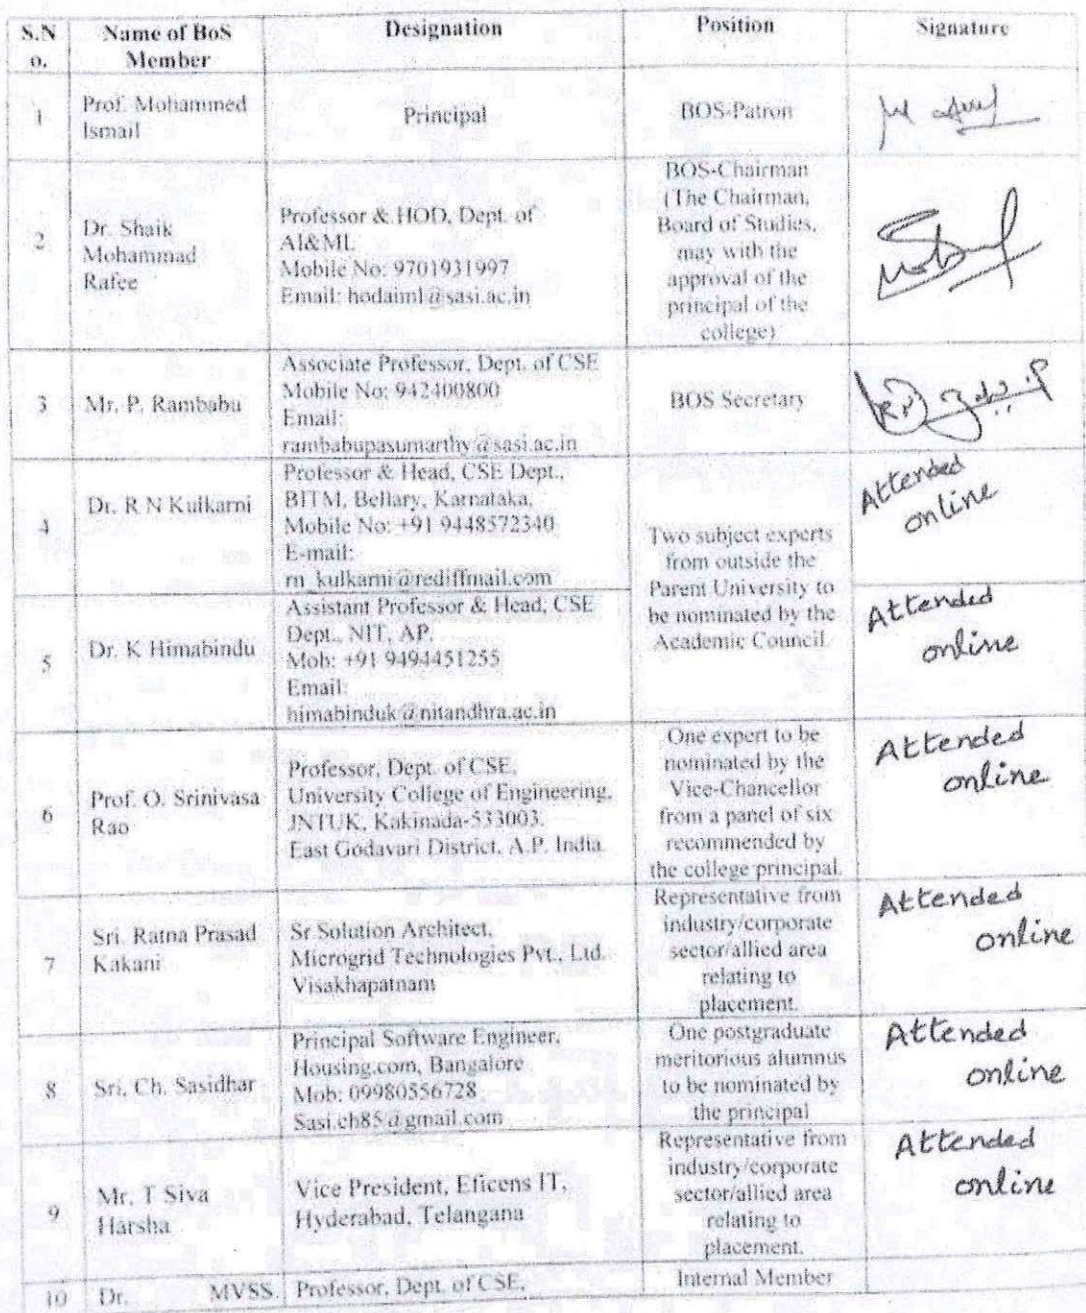 S.N Name of BoS Designation Position Signature
o. Member
1 Prof. Mohammed Ismail Principal BOS-Patron
BOS-Chairman
(The Chairman,
Board of Studies,
may with the
approval of the
principal of the
college)
2 Dr. Shaik
Mohammad
Rafee
Professor & HOD, Dept. of
AI&ML
Mobile No: 9701931997
Email: hodaiml@sasi.ac.in
3 Mr. P. Rambabu
Associate Professor, Dept. of CSE
Mobile No: 942400800
Email:
rambabupasumarthy@sasi.ac.in
BOS Secretary
4 Dr. R N Kulkarni
Professor & Head, CSE Dept.,
BITM, Bellary, Karnataka,
Mobile No: +91 9448572340
E-mail:
rn_kulkarni@rediffmail.com
Two subject experts
from outside the
Parent University to
be nominated by the
Academic Council.
Attended
online
5 Dr. K Himabindu
Assistant Professor & Head, CSE
Dept., NIT, AP.
Mob: +91 9494451255
Email:
himabinduk@nitandhra.ac.in
Attended
online
6 Prof. O. Srinivasa
Rao
Professor, Dept. of CSE,
University College of Engineering,
JNTUK, Kakinada-533003.
East Godavari District, A.P. India.
One expert to be
nominated by the
Vice-Chancellor
from a panel of six
recommended by
the college principal.
Attended
online
7 Sri. Ratna Prasad
Kakani
Sr Solution Architect,
Microgrid Technologies Pvt., Ltd.
Visakhapatnam
Representative from
industry/corporate
sector/allied area
relating to
placement.
Attended
online
8 Sri. Ch. Sasidhar
Principal Software Engineer,
Housing.com, Bangalore
Mob: 09980556728
Sasi.ch85@gmail.com
One postgraduate
meritorious alumnus
to be nominated by
the principal
Attended
online
9 Mr. T Siva
Harsha
Vice President, Eficens IT,
Hyderabad, Telangana
Representative from
industry/corporate
sector/allied area
relating to
placement.
Attended
online
10 Dr. MVSS. Professor, Dept. of CSE, Internal Member